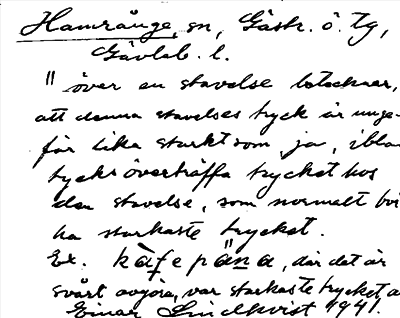 Hamrånge, sn, Gästr. ö. tg,
Gävleb. l.
" över en stavelse betecknar,
att denna stavelses tryck är unge-
fär lika starkt som ja, ibla
tycks överträffa trycket hos
den stavelse, som normalt bö
ha starkaste trycket.
Ex. kàfepäna, där det är
svårt avgöra, var starkaste trycket
Einar Lindkvist 1941.